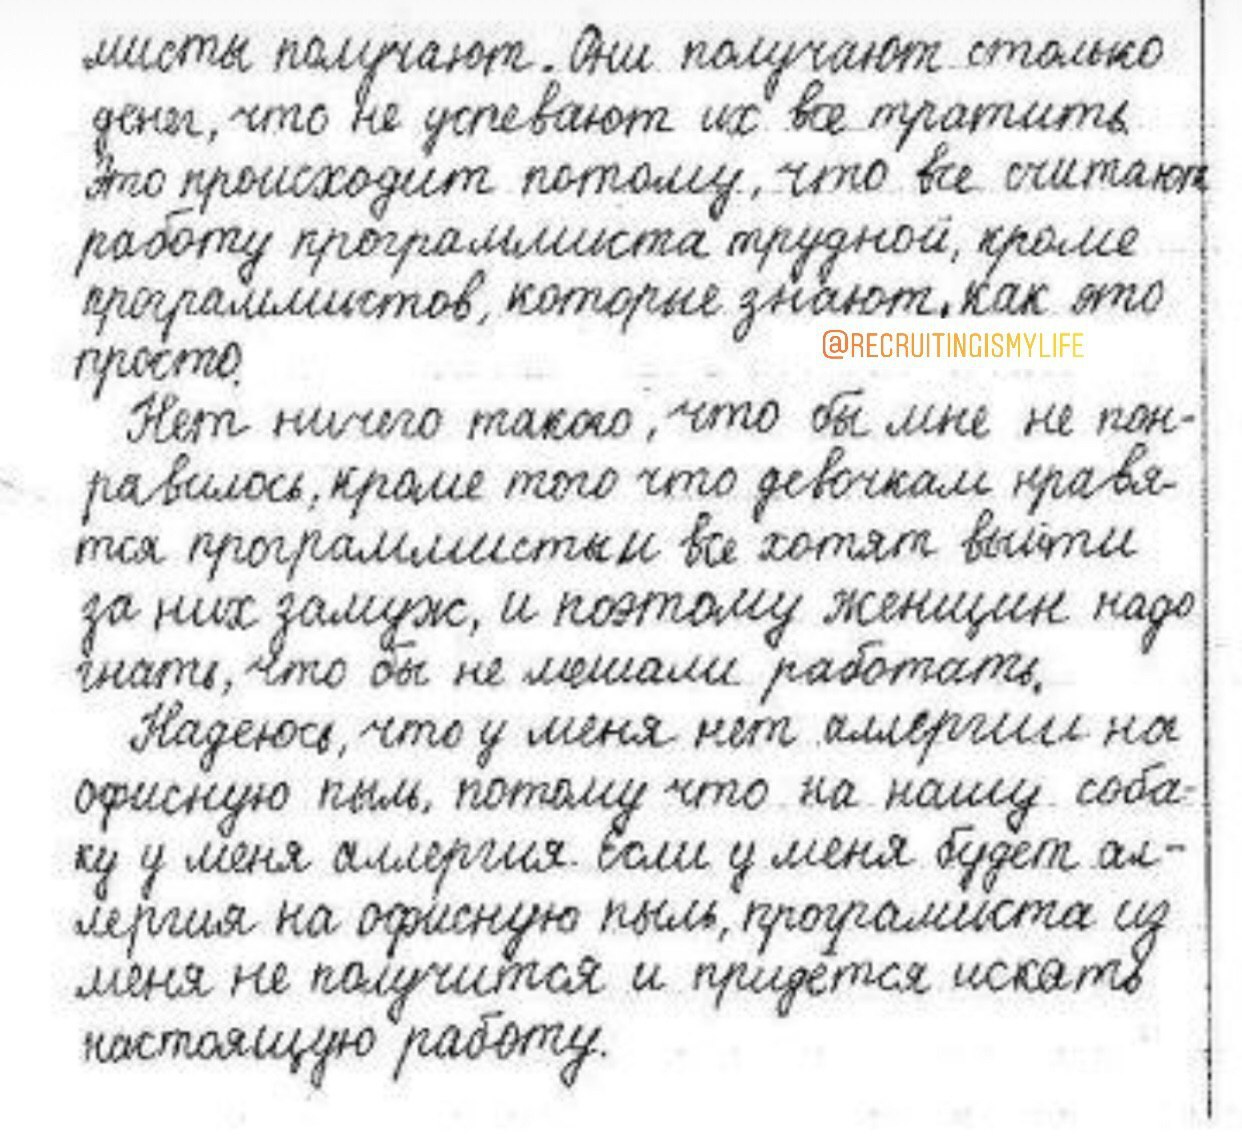 мисты получают. Они получают столько
денег, что не успевают их все тратить.
Это происходит потому, что все считают
работу программиста трудной, кроме
программистов, которые знают, как это
просто.
@RECRUITINGISMYLIFE
Нет ничего такого, что бы мне не пон-
равилось, кроме того что девочкам нравя-
тся программисты и все хотят выйти
за них замуж, и поэтому женщин надо
гнать, что бы не мешали работать.
Надеюсь, что у меня нет аллергии на
офисную пыль, потому что на нашу соба-
ку у меня аллергия. Если у меня будет ал-
лергия на офисную пыль, програмиста из
меня не получится и придётся искать
настоящую работу.